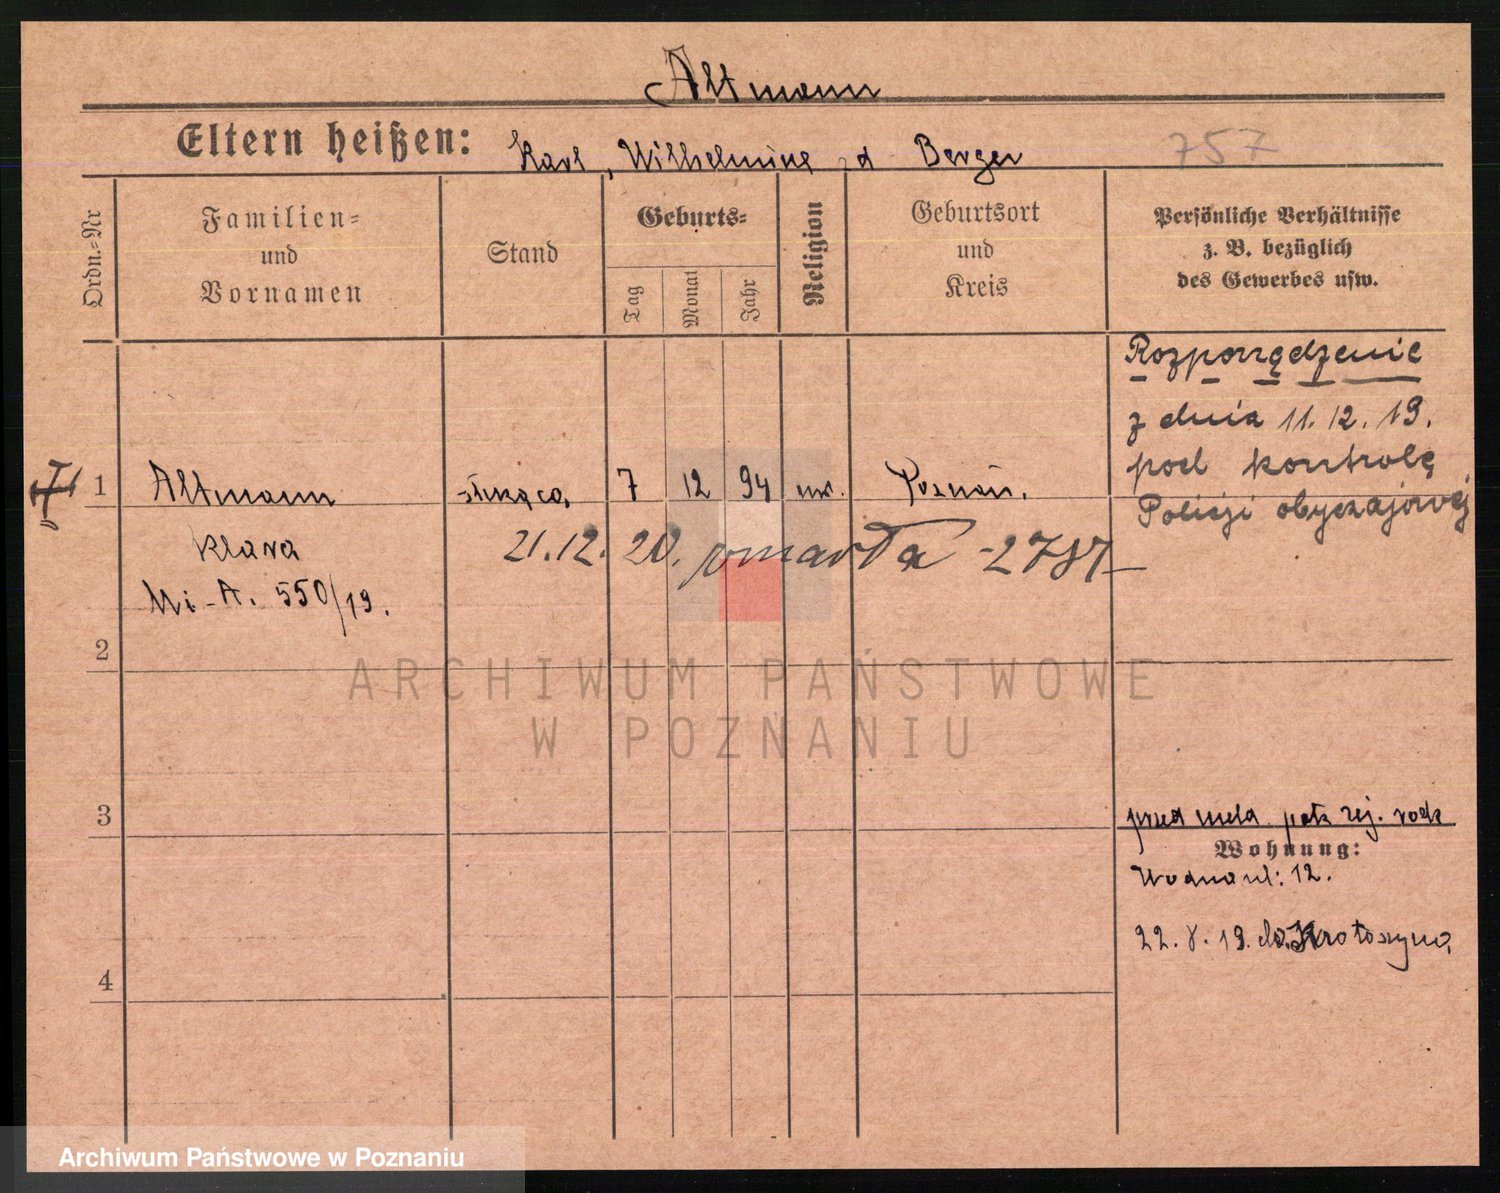 Altmann
Eltern heißen: Karl, Wilhelmine d Berger
757
Ordn.-Nr
Familien-
und
Vornamen
Stand
Geburts-
Tag
Monat
Jahr
Religion
Geburtsort
und
Kreis
Persönliche Verhältnisse
z. B. bezüglich
des Gewerbes usw.
Rozporządzenie
z dnia 11.12.19.
pod kontrolę
Policji obyczajowej
1 Altmann służąca 7 12 94 Poznań.
Klara
21.12.20. zmarła -2787-
Mi-A. 550/19.
2
ARCHIWUM PAŃSTWOWE
W POZNANIU
3
rej. rodz
Wohnung:
Wodna ul: 12.
22.8.19. do Krotoszyna
4
Archiwum Państwowe w Poznaniu